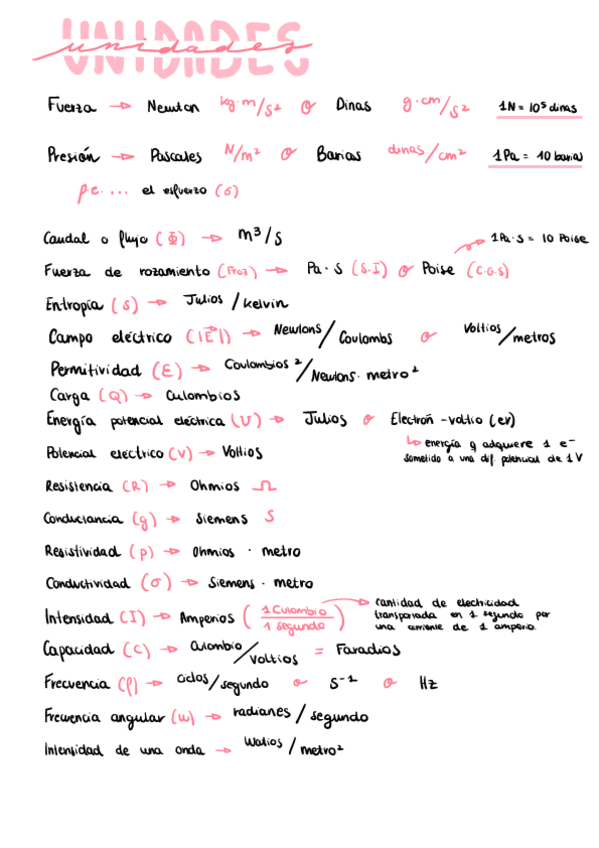 UNIDADES
unidades
Fuerza → Newton kg·m/s² o Dinas g·cm/s² 1N = 10⁵ dinas
Presión → Pascales N/m² o Barias dinas/cm² 1Pa = 10 barias
p.e. ... el esfuerzo (σ)
Caudal o flujo (Φ) → m³/s
1Pa·s = 10 Poise
Fuerza de rozamiento (Froz) → Pa·s (S.I) o Poise (C.G.S)
Entropía (s) → Julios/kelvin
Campo eléctrico (|E⃗|) → Newtons/Coulombs o Voltios/metros
Permitividad (ε) → Coulombios²/Newtons·metro²
Carga (Q) → Culombios
Energía potencial eléctrica (U) → Julios o Electrón-voltio (eV)
↳ energía q adquiere 1 e⁻
sometido a una dif. potencial de 1V
Potencial eléctrico (V) → Voltios
Resistencia (R) → Ohmios Ω
Conductancia (g) → Siemens S
Resistividad (ρ) → Ohmios · metro
Conductividad (σ) → Siemens · metro
Intensidad (I) → Amperios (1 Culombio/1 segundo) → cantidad de electricidad
transportada en 1 segundo por
una corriente de 1 amperio.
Capacidad (C) → Culombio/voltios = Faradios
Frecuencia (f) → ciclos/segundo o s⁻¹ o Hz
Frecuencia angular (w) → radianes/segundo
Intensidad de una onda → Watios/metro²